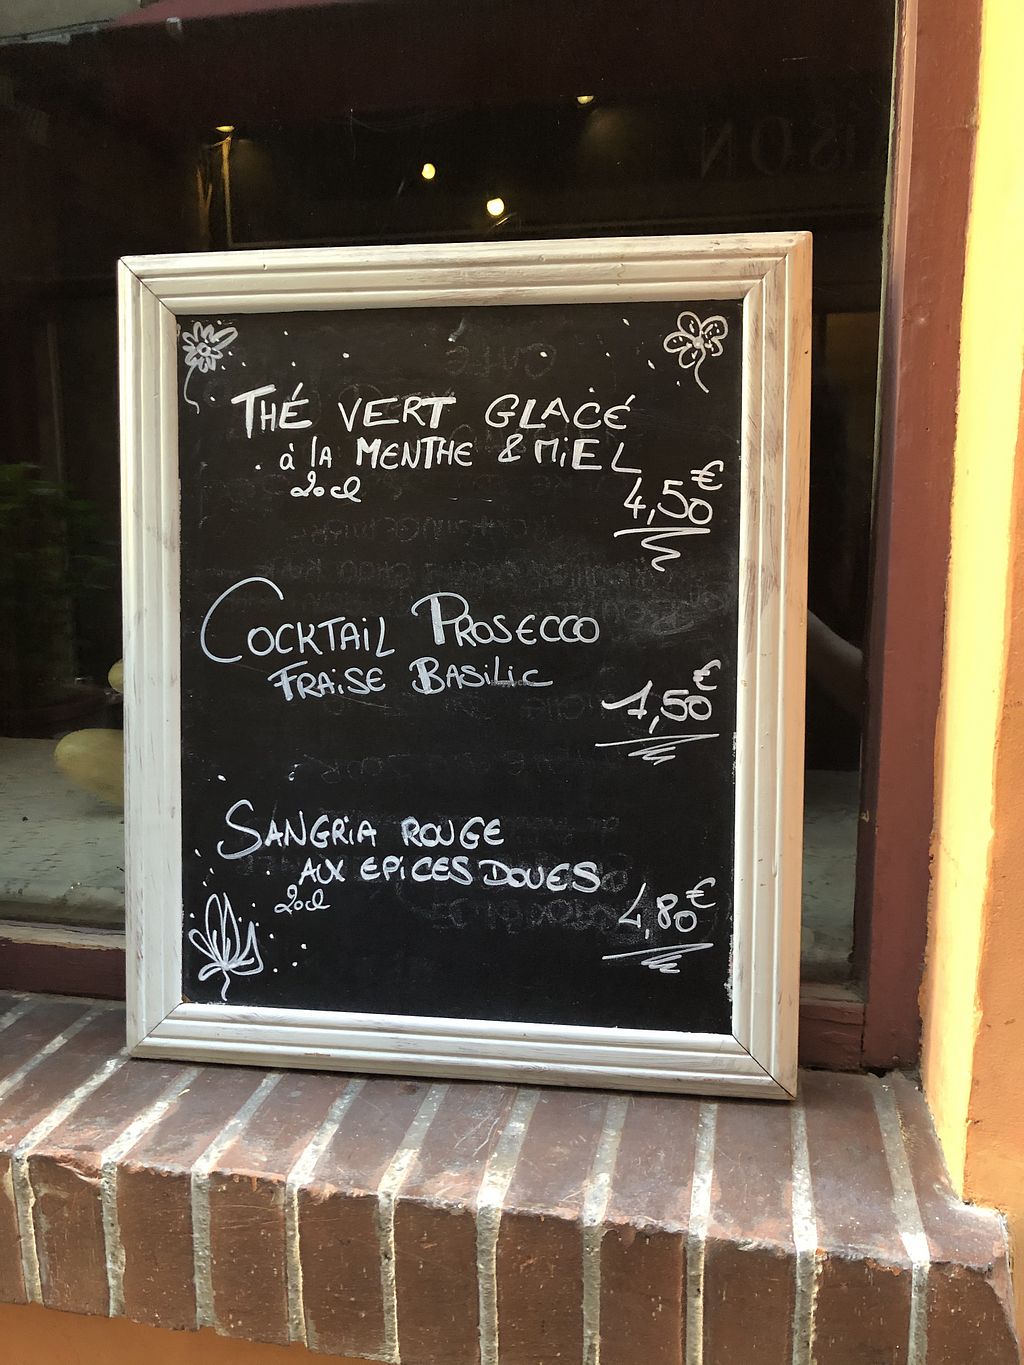 THÉ VERT GLACÉ
à la MENTHE & MiEL
20cl
4,50€
COCKTAiL PROSECCO
FRAiSE BASiLiC
7,50€
SANGRiA ROUGE
AUX EPiCES DOUES
20cl
4,80€